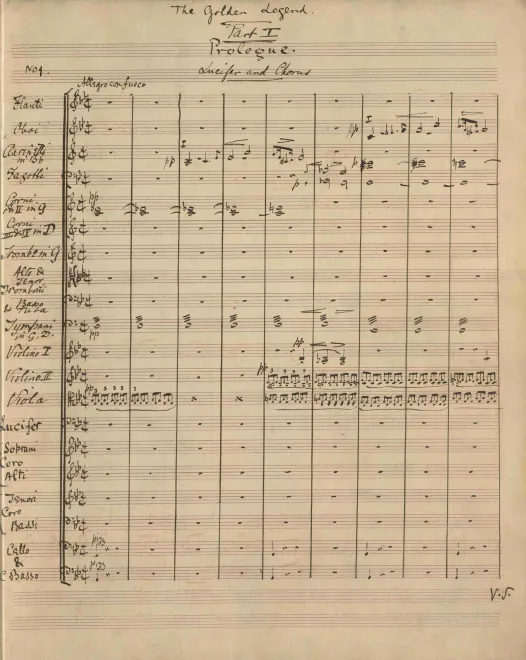 The Golden Legend.
Part I
Prologue.
No 1.
Lucifer and Chorus
Allegro con fuoco
Flauti
Oboi
I
pp
Clarinetti
in Bb
I
pp
Fagotti
p
pp
Corni
I & II in G
pp
Corni
III & IV in D
Trombe in G
Alto &
Tenor
Tromboni
Basso
& Tuba
Tympani
in G. D.
pp
Violino I
pp
Violino II
pp
3 3 3 3
Viola
pp 3 3 3 3
Lucifer
Soprani
Coro
Alti
Tenori
Coro
Bassi
Cello
&
C. Basso
V.S.